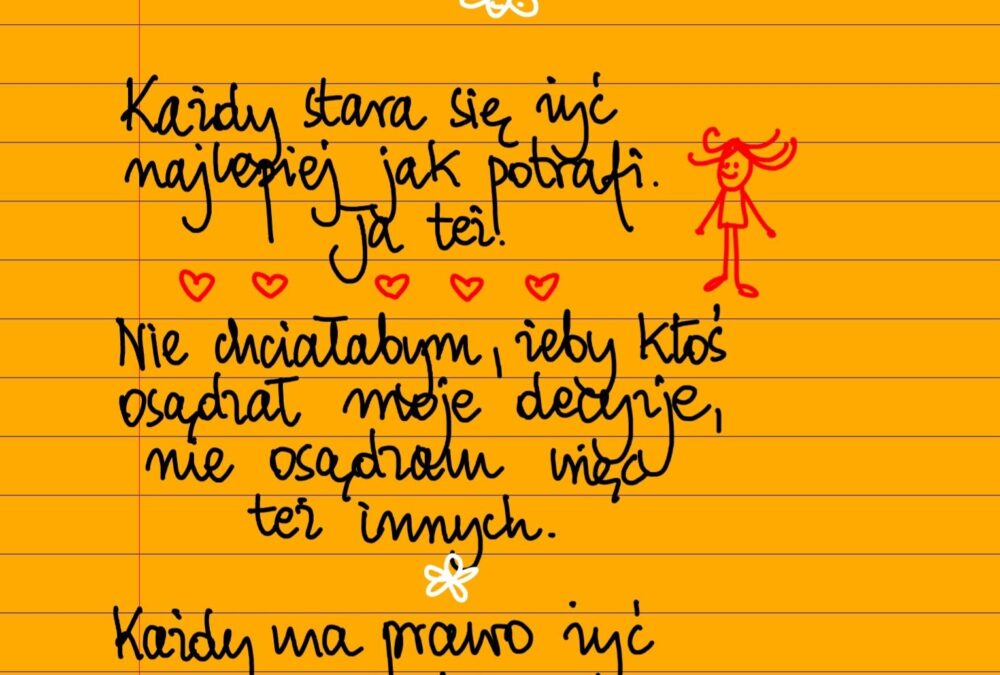 Każdy stara się żyć
najlepiej jak potrafi.
Ja też!
Nie chciałabym, żeby ktoś
osądzał moje decyzje,
nie osądzam więc
też innych.
Każdy ma prawo żyć